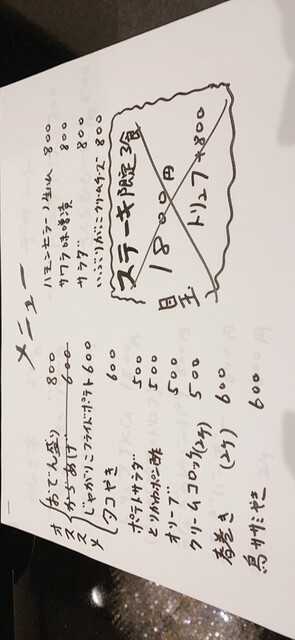 メニュー
オススメ
おでん盛り 800
からあげ 600
じゃがりこフライドポテト 600
タコやき 600
ポテトサラダ 500
とりかわポン酢 500
オリーブ 500
クリームコロッケ(2ケ) 500
春巻き (2ケ) 600
鳥ササミやき 600
ハモンセラーノ生ハム 800
サワラ味噌漬 800
サラダ 800
いぶりがっこクリームチーズ 800
ステーキ限定3食
1800円
トリュフ+800